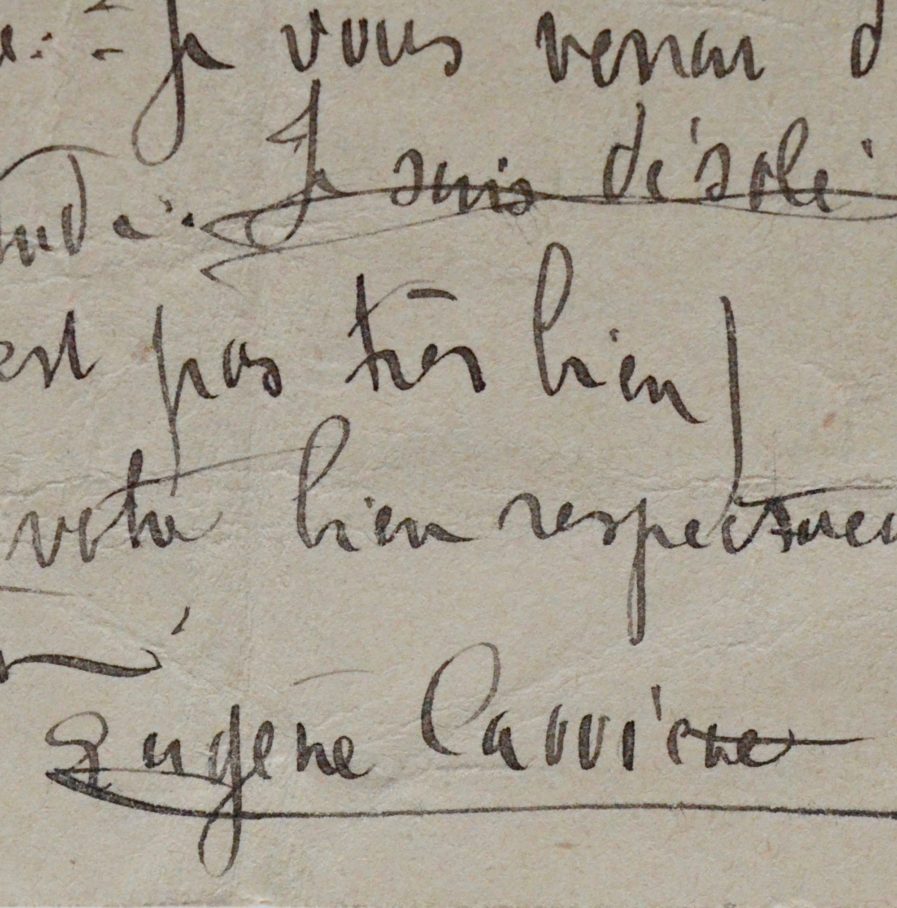 Je vous verrai d
Je suis désolé
est pas très bien)
votre bien respectueu
Eugène Carrière